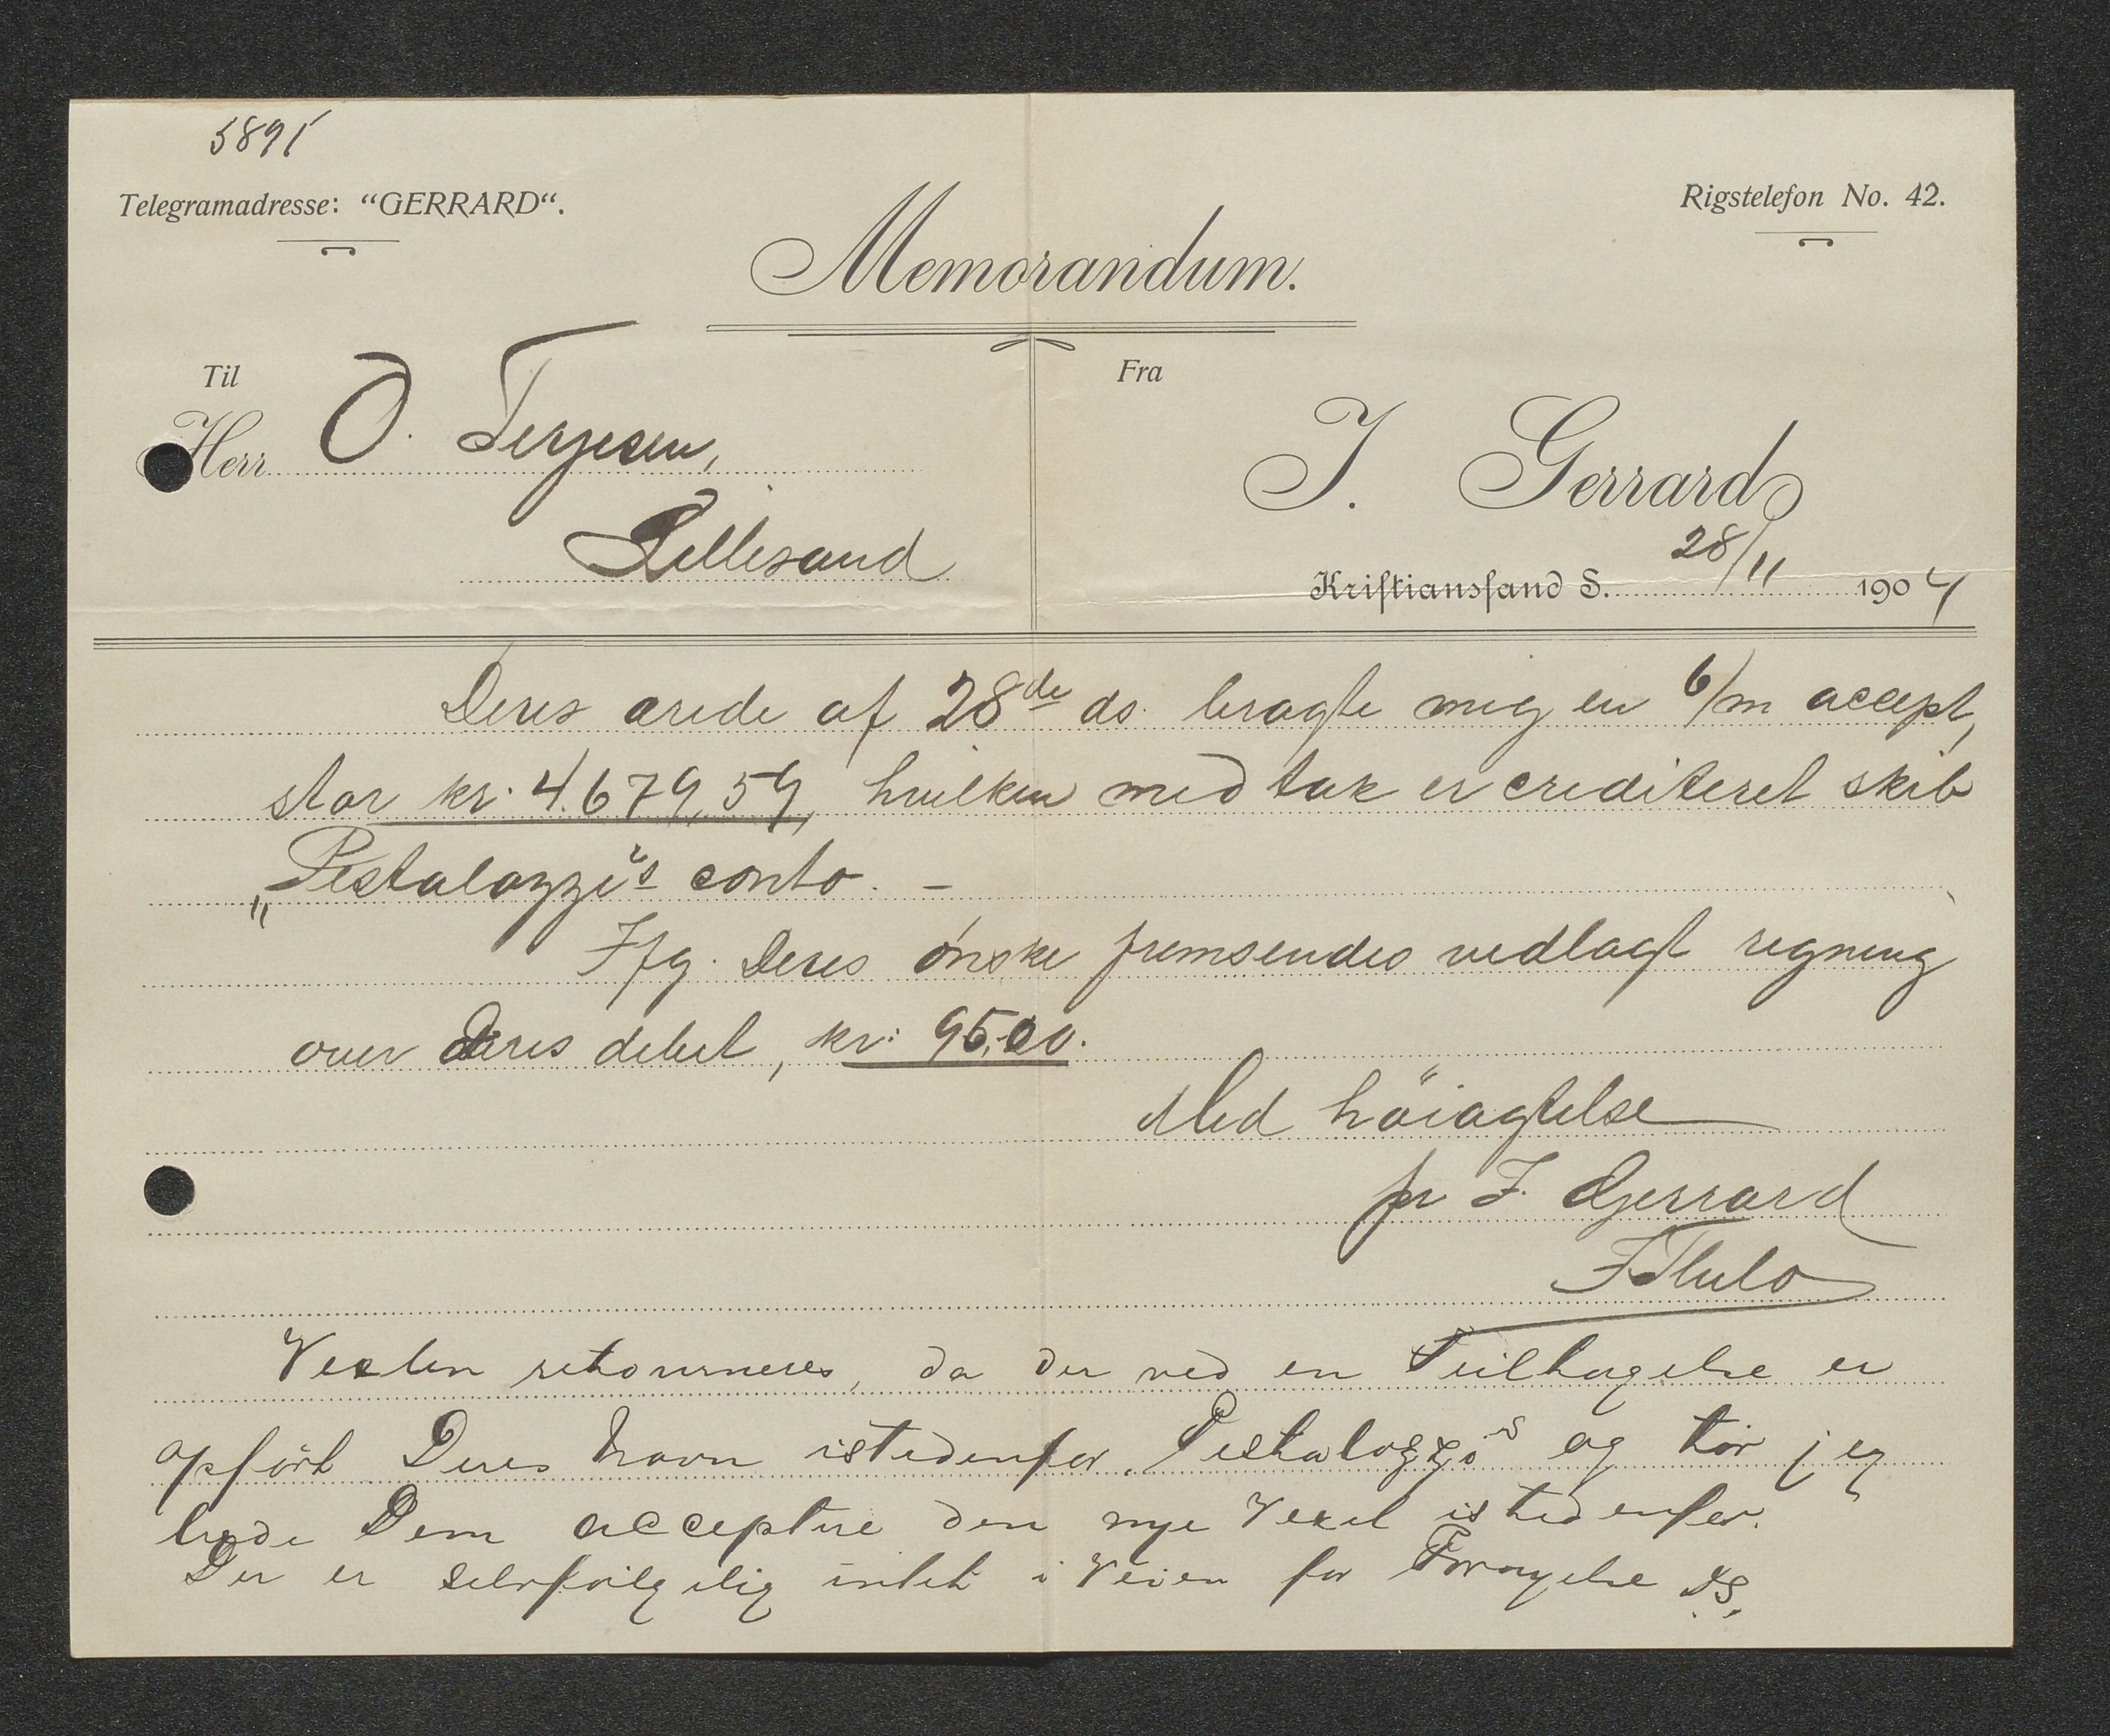 5891
Telegramadresse: “GERRARD“.
Rigstelefon No. 42.
Memorandum.
Til
Herr O. Terjesen,
Lillesand
Fra
J. Gerrard
Kristianssand S. 28/11 1904
Deres ærede af 28de ds. bragte mig en 6/m accept,
stor kr. 4.679,59, hvilken med tak er crediteret skib
„Pestalozzi"s conto. –
Ifg. Deres ønske fremsendes vedlagt regning
over Deres debet, kr: 95,00.
Med höiagtelse
pr J. Gerrard
Vexlen retourneres, da der ved en Feiltagelse er
opført Deres Navn istedenfor Pestalozzis og tør jeg
bede Dem acceptere den nye Vexel istedenfor.
Der er selvfølgelig intet i Veien for Fornyelse DS.